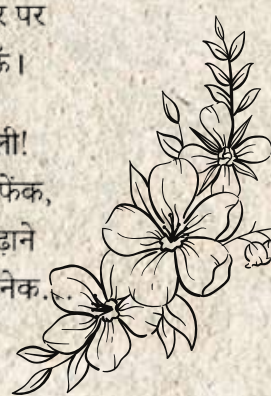 र पर
ऊँ।
ली!
फेंक,
ढ़ाने
नेक...